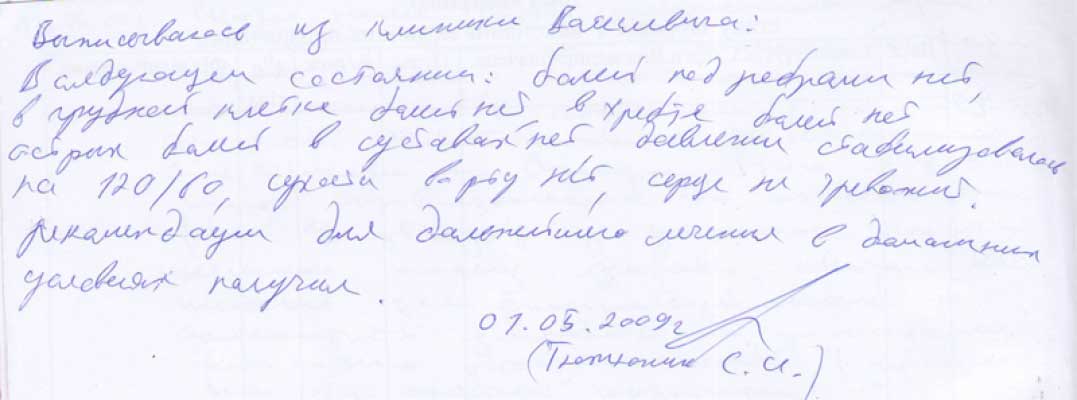 Выписывалась из клиники Василевича:
В следующем состоянии: болей под ребрами нет,
в грудной клетке болей нет, в хребте болей нет
острых болей в суставах нет давление стабилизовалось
на 120/60, сухости во рту нет, серце не тревожит.
рекомендации для дальнейшего лечения в домашних
условиях получил.
01.05.2009г
(Тютюник С.И.)